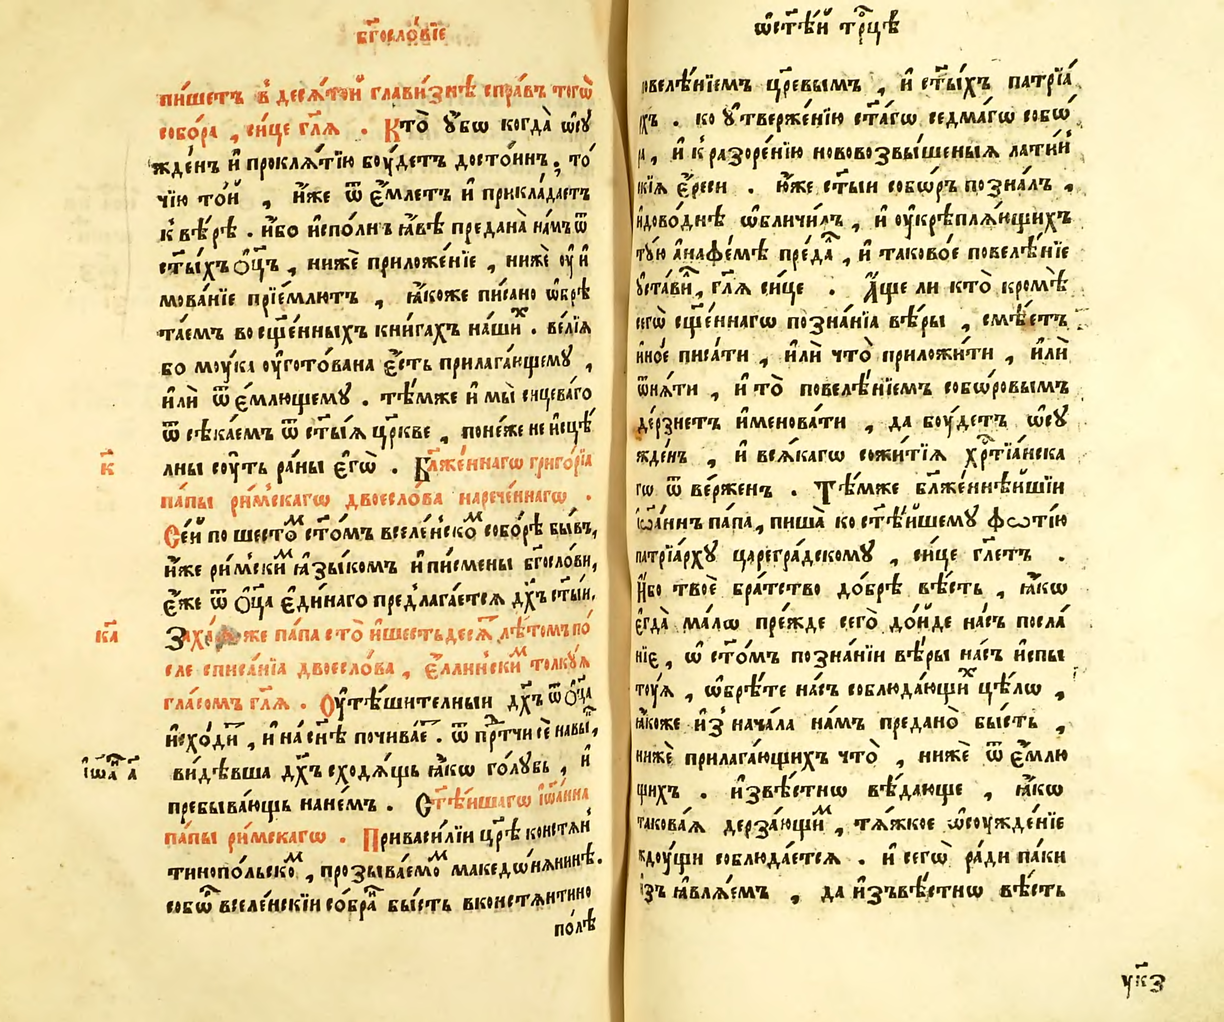 бг҃осло́вїе
пи́шетъ в̾ деся́той глави́знѣ спра́въ того̀
собо́ра , си́це гл҃я . Кто̀ ᲂу҆́бѡ когда̀ ѡ҆су
жде́нъ и҆ прокля́тїю бѹ́детъ досто́инъ , то́
чїю то́й , и҆́же ѿ е҆́млетъ и҆ прикла́даетъ
к̾ вѣ́рѣ . и҆́бо и҆спо́лнъ ꙗ҆́вѣ предана̀ на́мъ ѿ
ст҃ы́хъ ѻ҆ц҃ъ , нижѐ приложе́нїе , нижѐ ᲂу҆ и҆
мова́нїе прїе́млютъ , ꙗ҆́коже пи́сано ѡ҆брѣ
та́емъ во сщ҃е́нныхъ кни́гахъ на́шиⷯ . ве́лїя
бо мѹ́ка ᲂу҆гото́вана е҆́сть прилага́ющему ,
и҆лѝ ѿ е́млющему . тѣ́мже и҆ мы̀ сицева́го
ѿ сѣка́емъ ѿ ст҃ы́я цр҃кве , поне́же не и҆сцѣ́
лны сѹ́ть ра́ны е҆гѡ̀ .
к҃
Бл҃же́ннагѡ григо́рїа
па́пы ри́мскагѡ двоесло́ва нарече́ннагѡ .
Се́й по шесто́ⷨ ст҃о́мъ вселе́нскоⷨ собо́рѣ бы́въ,
и҆́же ри́мскиⷨ ꙗ҆зы́комъ и҆ пи́смены бг҃осло́ви,
е҆́же ѿ ѻ҆ц҃а̀ е҆ди́наго предлага́ется дх҃ъ ст҃ы́й.
ка҃
же па́па сто̀ и҆ шестьдеся́т лѣ́томъ по́
сле списа́нїа двоесло́ва , е҆́ллинскиⷨ толку́я
гла́сомъ гл҃я . Оу҆тѣ́шительныи дх҃ъ ѿ ѻ҆ц҃а̀
и҆схо́диⷮ , и҆ на сн҃ѣ почива́еⷮ . ѿ пр҇тчи сѐ навы́ⷦ,
і҆ѡ҃а҃ а҃
ви́дѣвша дх҃ъ сходя́щь ꙗ҆́кѡ го́лубь , и҆
пребыва́ющь на не́мъ . Ст҃ѣ́ишагѡ і҆ѡа́нна
па́пы ри́мскагѡ . При васи́лїи цр҃ѣ̀ констя́н
тинопо́льскоⷨ , прозыва́емоⷨ македѡ́нянинѣ.
собѡ́ⷬ вселе́нскїи со́браⷩ бы́сть вконстянтино
по́лѣ
ѡ҆ ст҃ѣ́й тр҇цѣ
повелѣ́нїемъ цр҃евымъ , и҆ ст҃ы́хъ патрїа́
хъ . ко ᲂу҆тверже́нїю ст҃а́гѡ седма́гѡ собѡ́
ра , и҆ к̾ разоре́нїю новово звы́шеныя лати́н
скїя е҆́реси . и҆́же ст҃ы́и собѡ́ръ позна́лъ ,
и҆ дово́днѣ ѡ҆бличи́лъ , и҆ ᲂу҆крѣпля́ющихъ
ту́ю а҆на́ѳемѣ преда́ , и҆ таково́е повелѣ́нїе
ᲂу҆ста́ви , гл҃я си́це . А҆́ще ли кто̀ кромѣ̀
сегѡ̀ сщ҃е́ннагѡ позна́нїа вѣ́ры , смѣ́етъ
и҆но́е писа́ти , и҆лѝ что̀ приложи́ти , и҆лѝ
ѿня́ти , и҆ то̀ повелѣ́нїемъ собѡ́ровымъ
де́рзнетъ и҆менова́ти , да бѹ́детъ ѡ҆су
жде́нъ , и҆ вся́кагѡ сожи́тїя хр҇тїа́нска
гѡ ѿ ве́рженъ . Тѣ́мже бл҃же́ннѣишїи
і҆ѡа́ннъ па́па, пиша̀ ко ст҃ѣ́йшему фѡтїю
патрїа́рху цареград́скому , си́це гл҃етъ .
И҆́бо твоѐ бра́тство до́брѣ вѣ́сть , ꙗ҆́кѡ
е҆гда̀ ма́лѡ пре́жде сего̀ до́йде на́съ посла́
нїе , ѡ҆ ст҃о́мъ позна́нїи вѣ́ры на́съ и҆спы
ту́я , ѡ҆брѣ́те на́съ соблюда́ющиⷯ цѣ́лѡ ,
ꙗ҆́коже и҆з̾ нача́ла на́мъ предано̀ бы́сть ,
нижѐ прилага́ющихъ что̀ , нижѐ ѿ е҆́млю
щихъ . и҆звѣ́стнѡ вѣ́дающе , ꙗ҆́кѡ
такова́я дерза́ющиⷨ , тя́жкое ѡ҆сѹжде́нїе
ждѹ́щи соблюда́ется . и҆ сегѡ̀ ра́ди па́ки
і҆зъ ꙗ҆вля́емъ , да и҆зъвѣ́стнѡ вѣ́сть
ук҃з